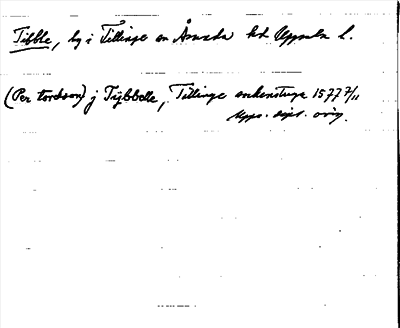 Tibble, by i Tillinge sn Åsunda hd Uppsala l.
(Per tordson) j Tijbbelle, Tillinge sockenstuga 1577 7/11
Upps. dipl. orig.